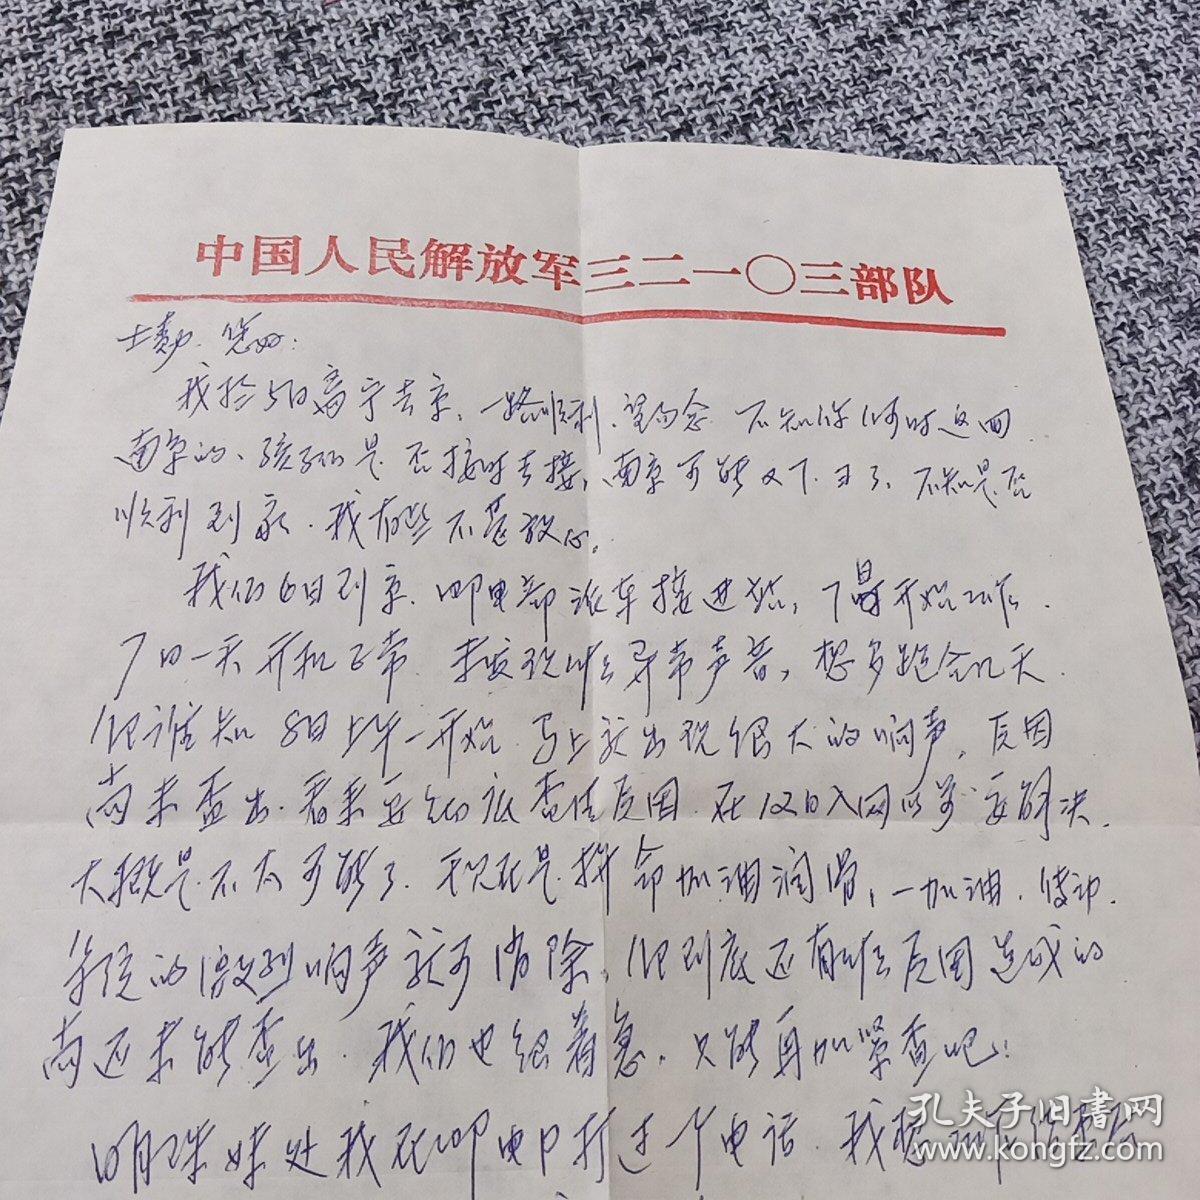 中国人民解放军三二一〇三部队
士勤.您好:
我于5日离宁去京、一路顺利、望勿念 不知你何时返回
南京的、孩子们是否按时去接、南京可能又下雨了、不知是否
顺利到家.我有些不甚放心。
我们6日到京.邮电部派车接进站,7日开始工作.
7日一天开机正常 未发现什么异常声音,想多跑合几天
但谁知 8日上午一开始.马上就出现很大的响声,原因
尚未查出.看来要彻底查清原因.在12日入网以前要解决.
大概是不太可能了.现在是拼命加油润滑,一加油.传动
系统的激烈响声就可消除,但到底还有什么原因造成的
尚还未能查出.我们也很着急.只能再加紧查吧!
明珠妹处我在邮电部打过一个电话.我想
孔夫子旧书网
www.kongfz.com